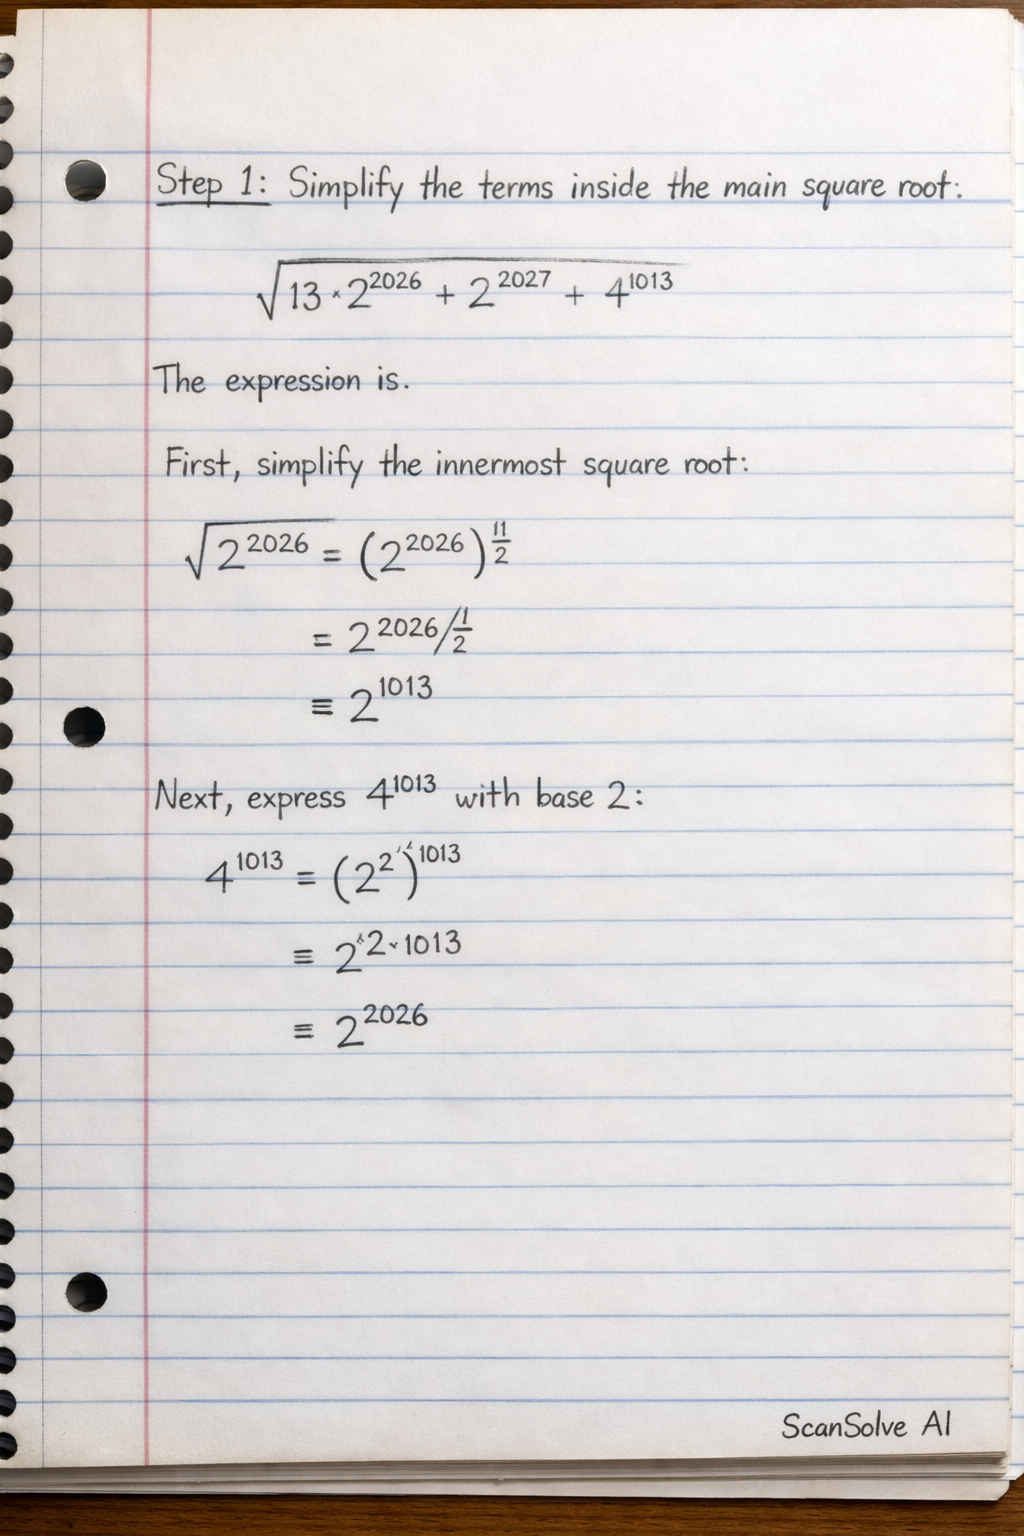 Step 1: Simplify the terms inside the main square root:
√13 · 2^2026 + 2^2027 + 4^1013
The expression is.
First, simplify the innermost square root:
√2^2026 = (2^2026)^11/2
= 2^2026/1/2
≡ 2^1013
Next, express 4^1013 with base 2:
4^1013 = (2^2)^1013
≡ 2^2·1013
≡ 2^2026
ScanSolve AI